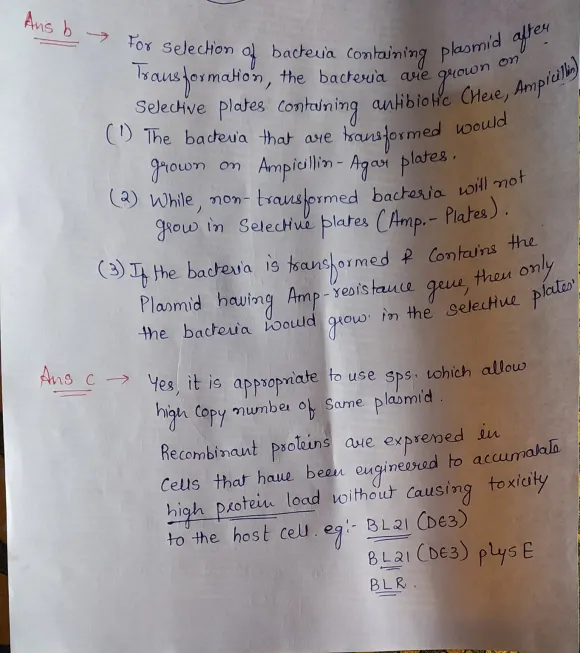 Ans b → For selection of bacteria containing plasmid after
Transformation, the bacteria are grown on
selective plates containing antibiotic (Here, Ampicillin)
(1) The bacteria that are transformed would
grown on Ampicillin-Agar plates.
(2) While, non-transformed bacteria will not
grow in selective plates (Amp.-Plates).
(3) If the bacteria is transformed & contains the
Plasmid having Amp-resistance gene, then only
the bacteria would grow in the selective plates.
Ans c → Yes, it is appropriate to use sps. which allow
high copy number of same plasmid.
Recombinant proteins are expressed in
cells that have been engineered to accumalate
high protein load without causing toxicity
to the host cell. eg:- BL21 (DE3)
BL21 (DE3) plys E
BLR.